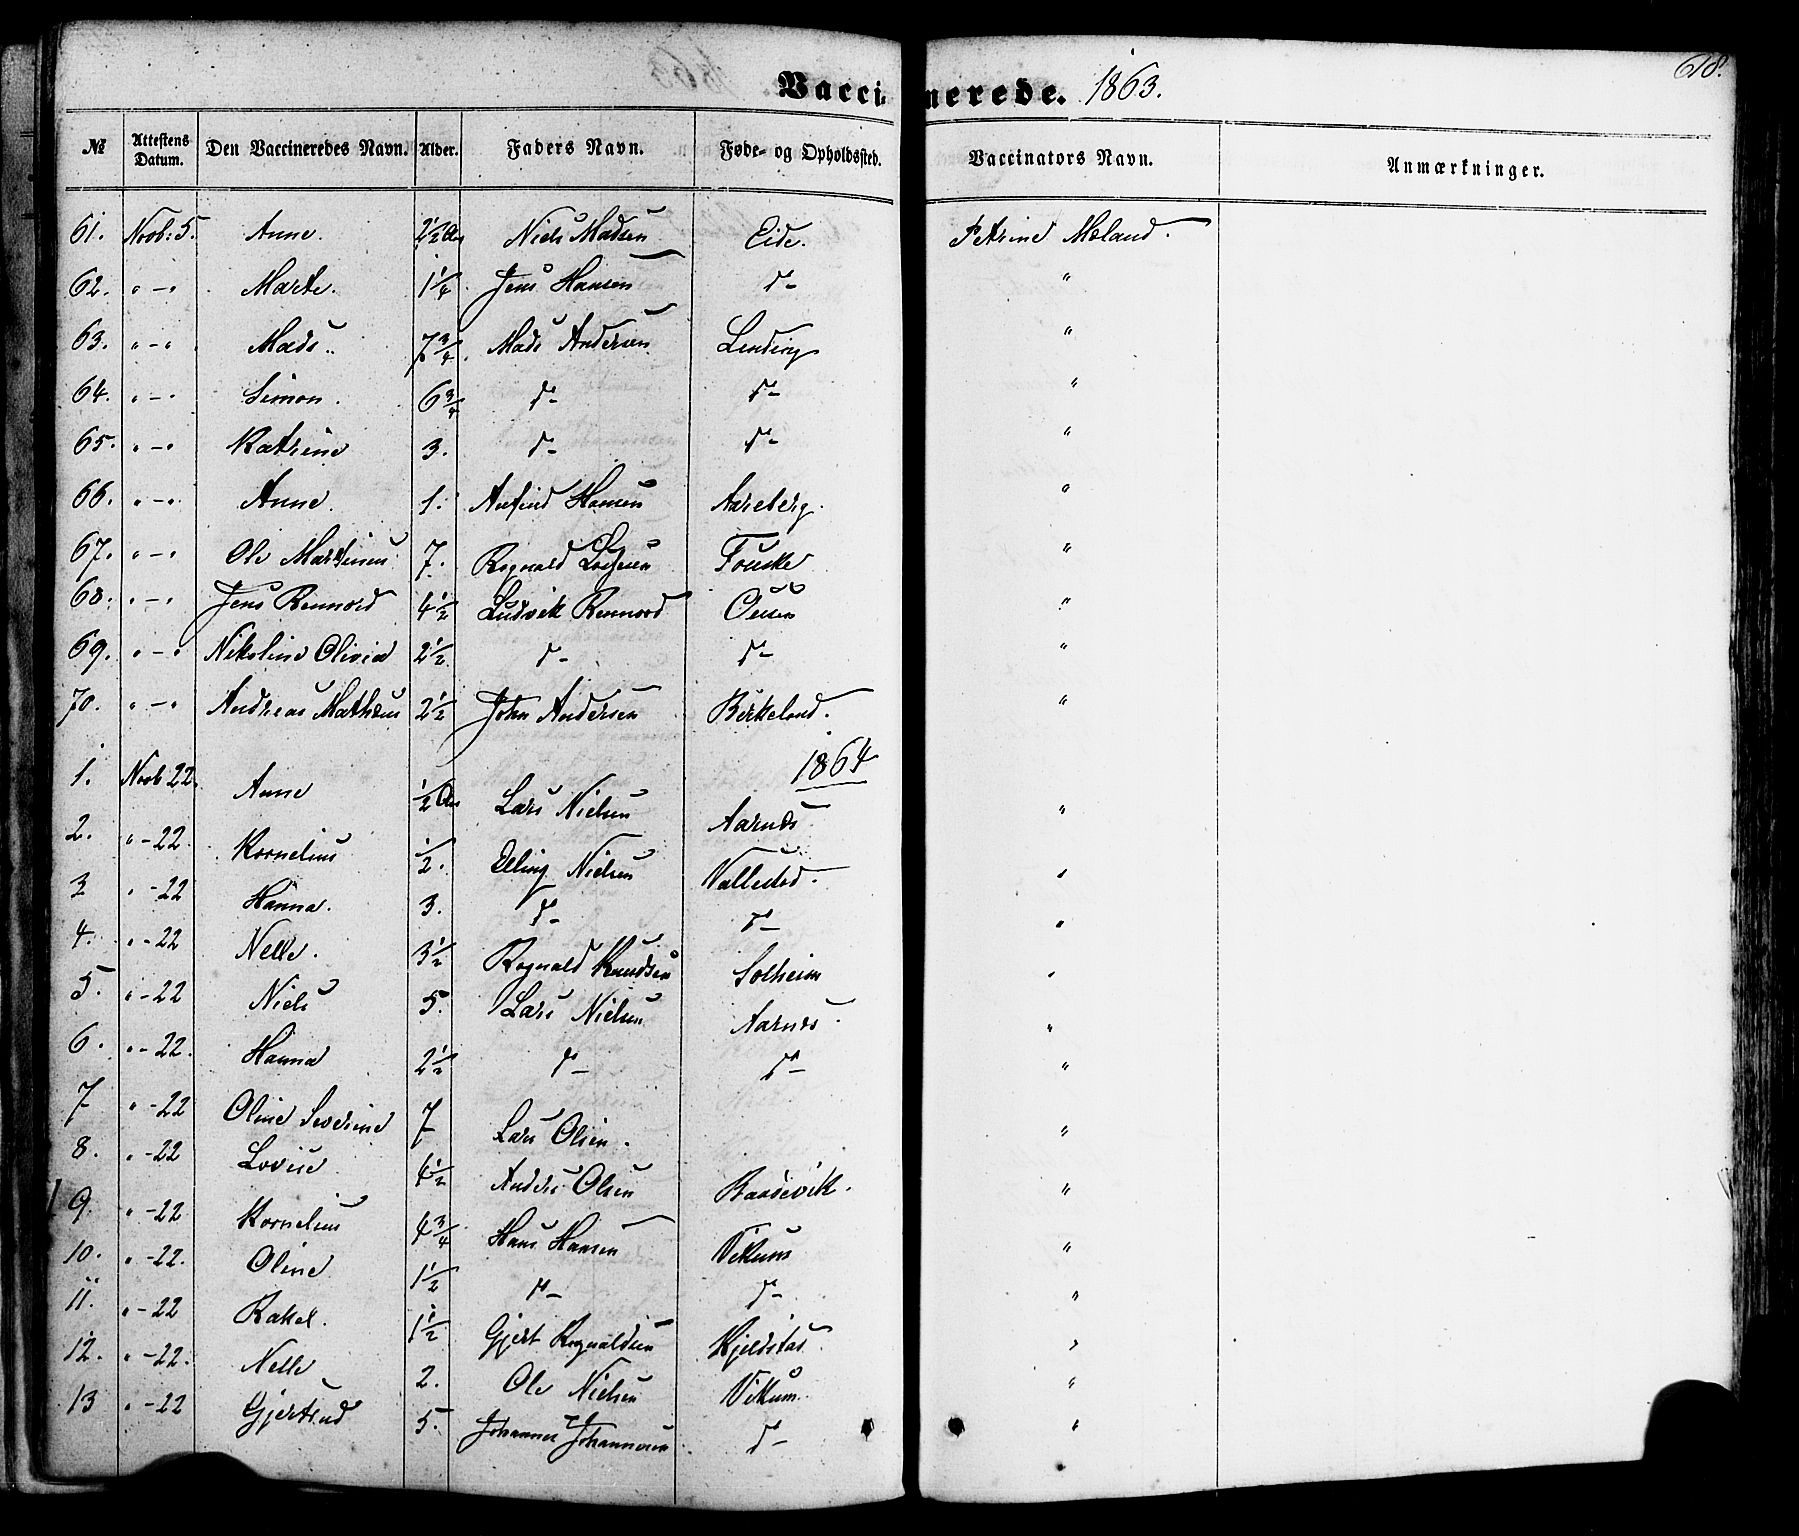 618.
Vaccinerede. 1863.
№ Attestens Datum. Den Vaccineredes Navn. Alder. Faders Navn. Føde- og Opholdssted. Vaccinators Navn. Anmærkninger.
61. Novb. 5. Anne. 2 1/2 Niels Madsen Eide. Petrine Mæland.
62. " - " Marte. 1 1/4 Jens Hansen d- "
63. " - " Mads. 7 3/4 Mads Andersen "
64. " - " Simon. 6 3/4 d- d- "
65. " - " Katrine 3. d- d- "
66. " - " Anne. 1. Hansen Aareberg. "
67. " - " Ole Martinus 7. Rognald "
68. " - " Jens Rennord 4 1/2 Ludvik Rennord "
69. " - " Nikoline Olivia 2 1/2 d- d- "
70. " - " Andreas Matheus 2 1/2 John Andersen Birkeland. "
1864
1. Novb 22. Anne 1/2 Lars Nielsen Aarnes "
2. " - 22. Kornelius 1/2. Elling Nielsen Vallestad. "
3 " - 22 Hanna. 3. d- d- "
4. " - 22 Nelle. 3 1/2 Rognald Knudsen Solheim "
5. " - 22 Niels 5. Lars Nielsen Aarnes. "
6. " - 22. Hanna 2 1/2 d- d- "
7 " - 22 Oline Severine 7 Lars Olsen. "
8. " - 22 Lovise 4 1/2 Anders Olsen Baardevik. "
9. " - 22 Kornelius 4 3/4 Hans Hansen Vikum "
10. " - 22. Oline 1 1/2 d- d- "
11. " - 22 Rakel. 1 1/2 Gjert Rognaldsen Kjelstad. "
12. " - 22. Nelle 2. Ole Nielsen Vikum. "
13 " - 22 Gjertrud 5. Johannes Johannesen d- "